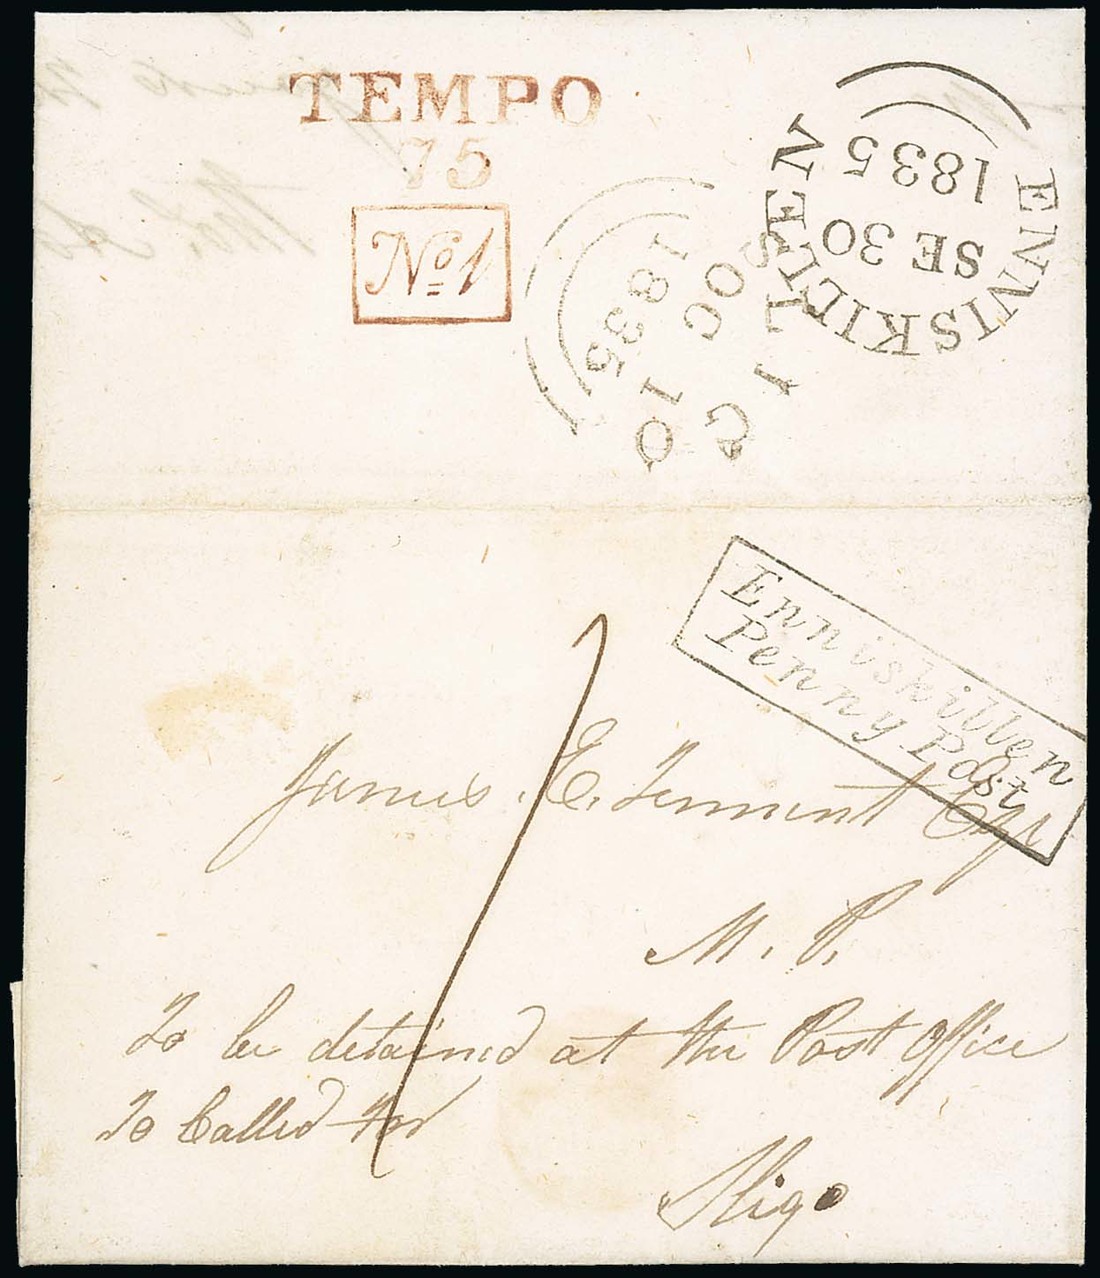 TEMPO
75
No. 1
ENNISKILLEN
SE 30
1835
SLIGO
OC 1
1835
Enniskillen
Penny Post
1
James E. Tennent Esqr
M. P.
To be detained at the Post Office
To Called For
Sligo